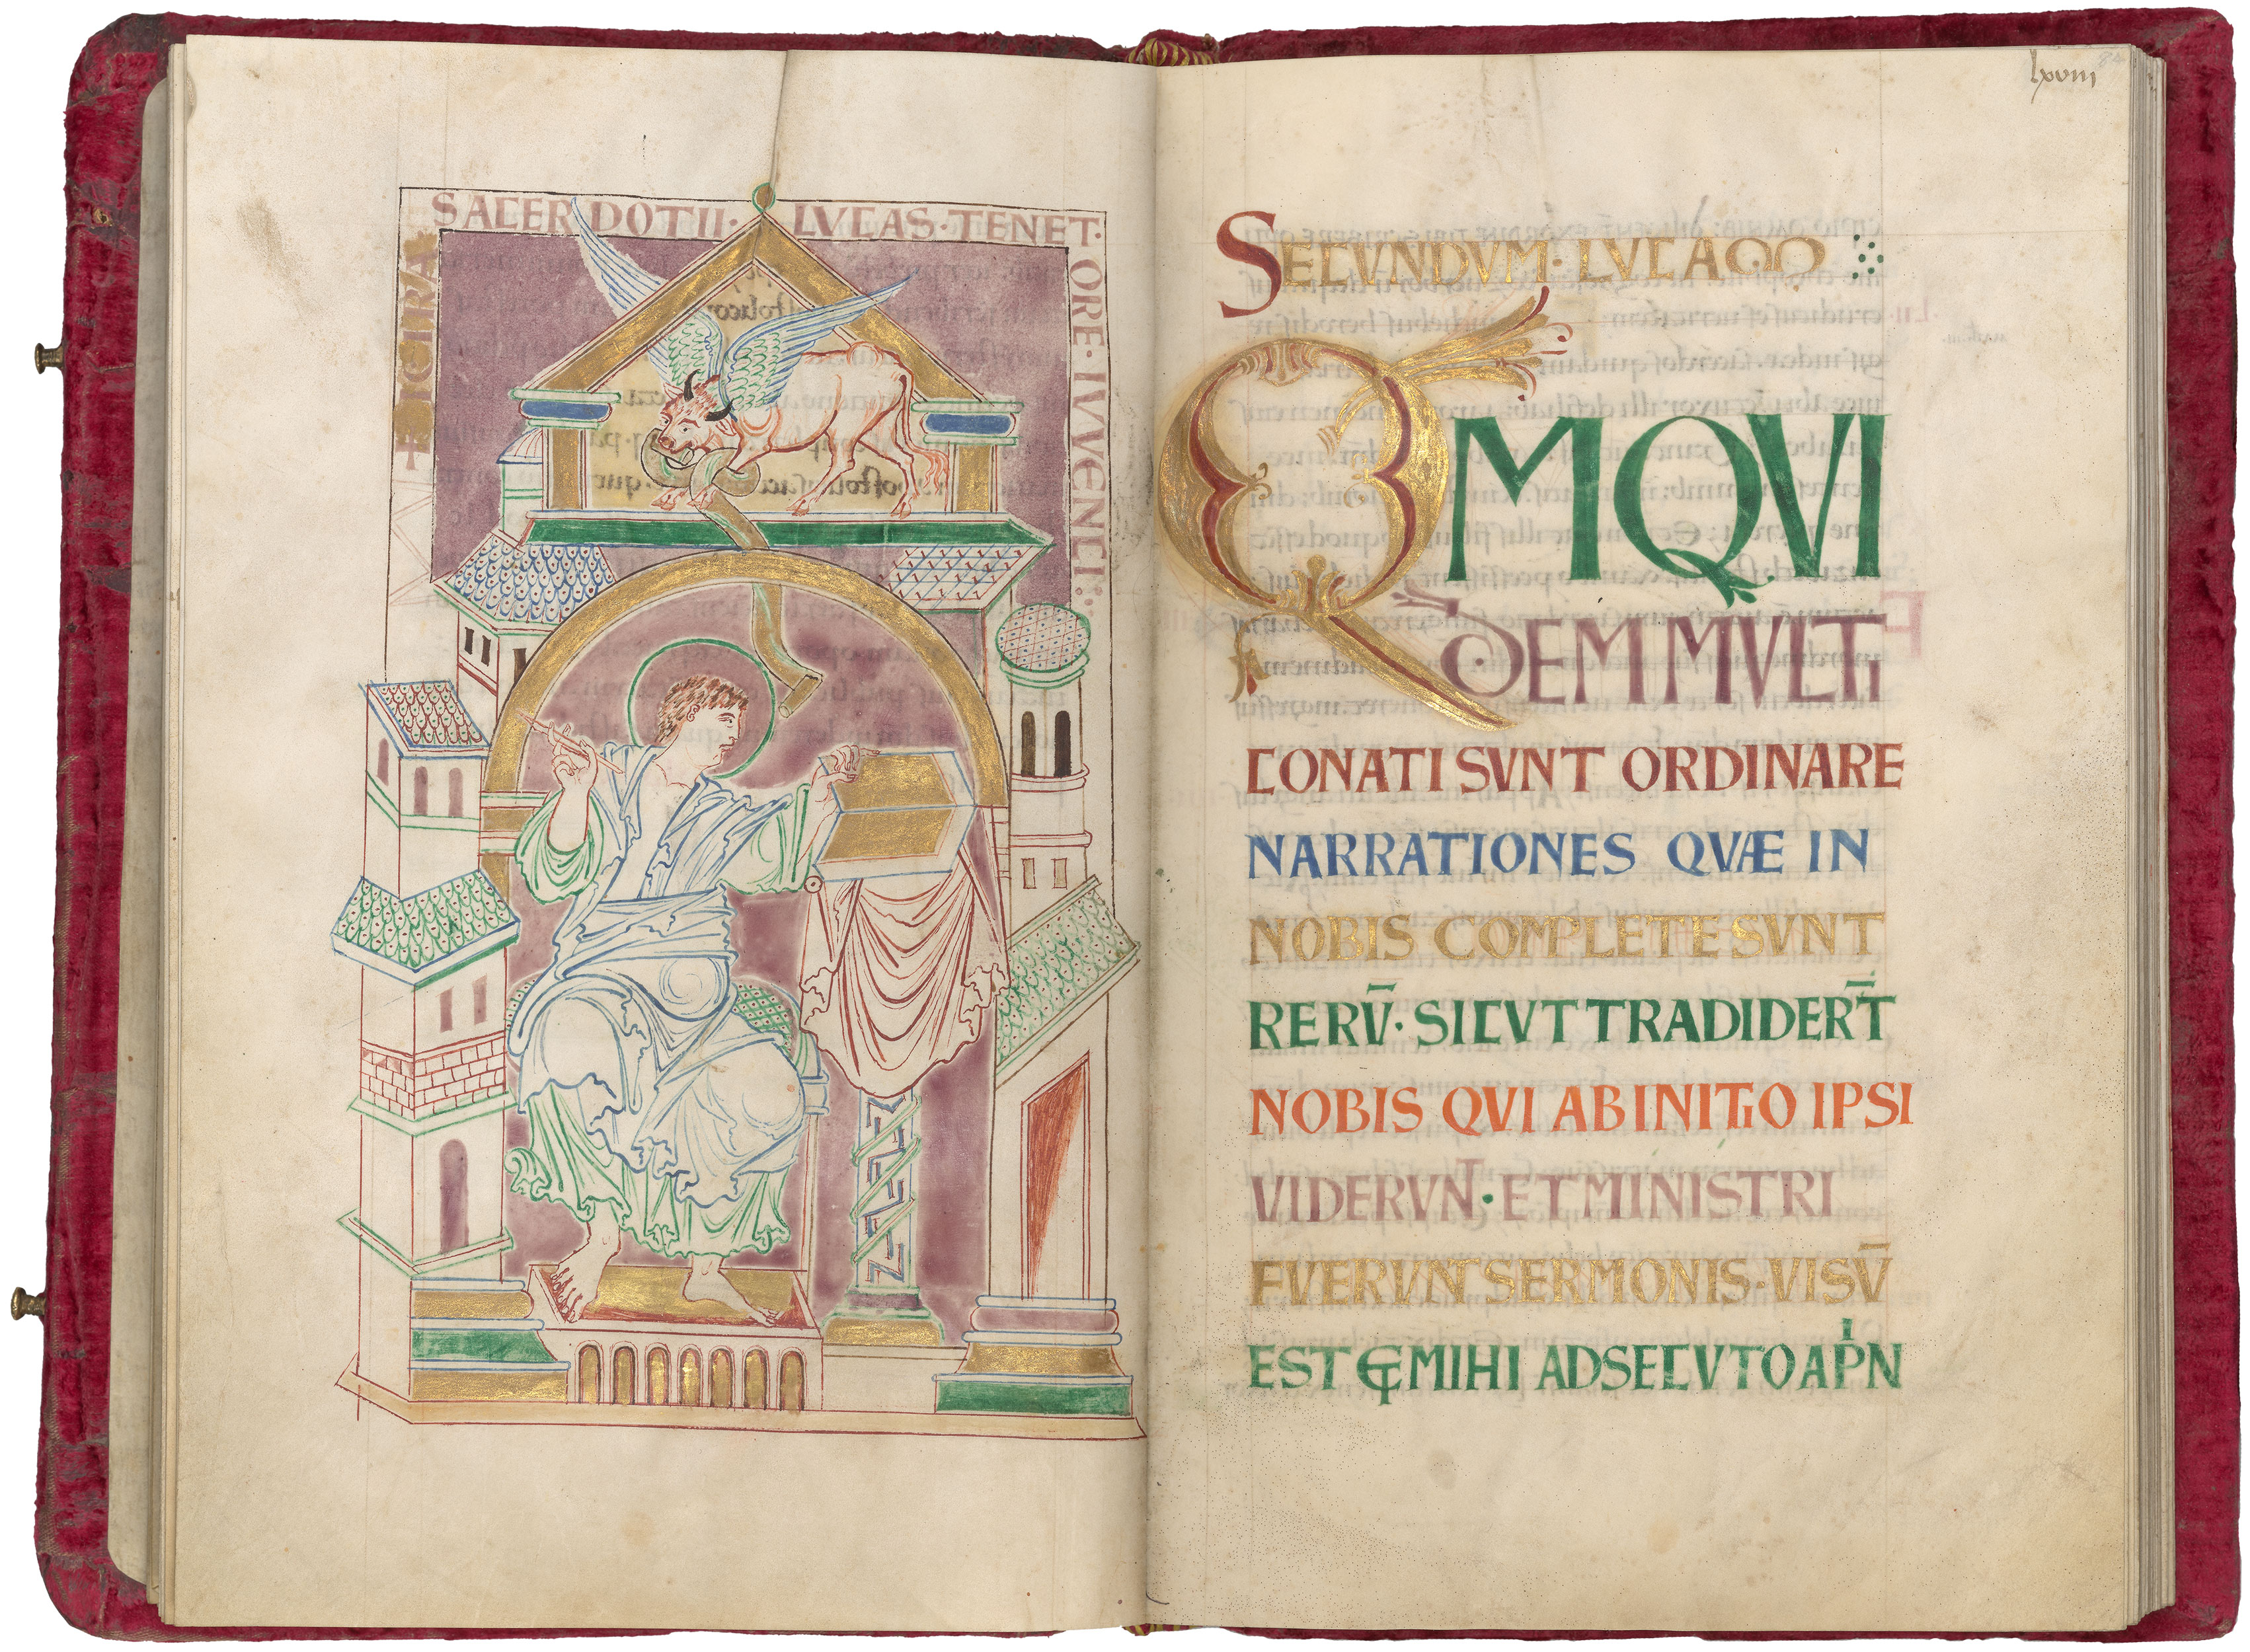 ✝ IGIRA
SACERDOTII · LVCAS · TENET ·
ORE · IVVENCI :·
lxviii
84
SECUNDVM · LVCAM
QMQVI
DEM MVLTI
CONATI SVNT ORDINARE
NARRATIONES QVÆ IN
NOBIS COMPLETE SVNT
RERV̄ · SICVT TRADIDER̄T
NOBIS QVI AB INITIO IPSI
VIDERVNT · ET MINISTRI
FVERVNT SERMONIS · VISV̄
EST ET MIHI ADSECVTO A PͥN